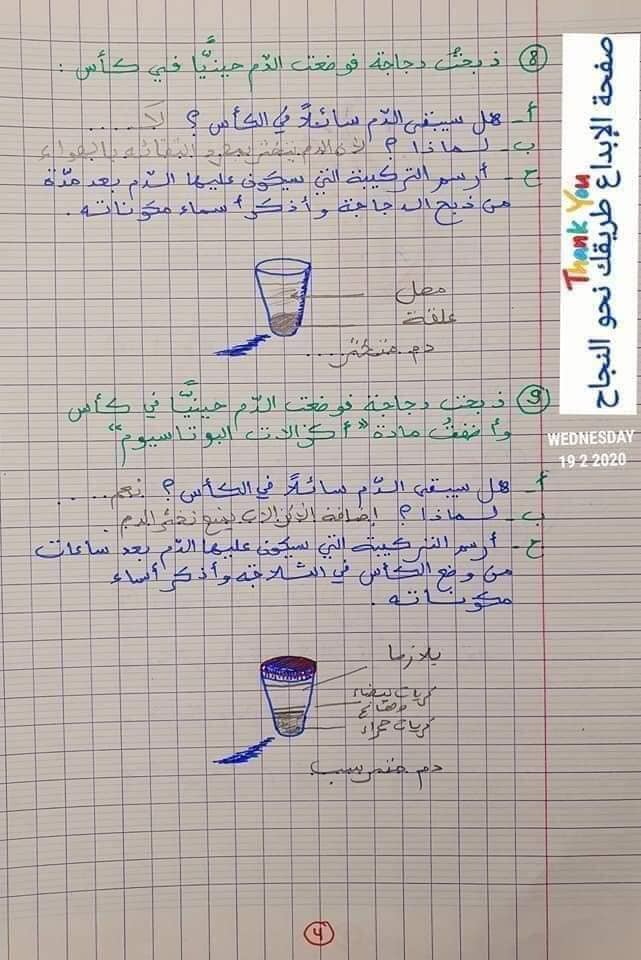 ⑧ ذبحتُ دجاجة فوضعت الدّم حينيًّا في كأس :
أ- هل سيبقى الدّم سائلاً في الكأس ؟ لَا .....
ب- لماذا ؟ لأن الدم يتخثر بمجرد التقائه بالهواء
ج- أرسم التركيبة التي سيكون عليها الدّم بعد مدّة
من ذبح الدجاجة وأذكر أسماء مكوناته .
مصل
علقة
دم متخثر ....
⑨ ذبحت دجاجة فوضعت الدّم حينيًّا في كأس
وأضفتُ مادة "أكزالات البوتاسيوم"
أ- هل سيبقى الدّم سائلاً في الكأس ؟ نعم ....
ب- لماذا ؟ إضافة الأكزالات يمنع تخثر الدم .
ج- أرسم التركيبة التي سيكون عليها الدّم بعد ساعات
من وضع الكأس في الثلاجة وأذكر أسماء
مكوناته .
بلازما
كريات بيضاء
وصفائح
كريات حمراء
دم مترسب
4
صفحة الإبداع طريقك نحو النجاح
Thank You
WEDNESDAY
19 2 2020